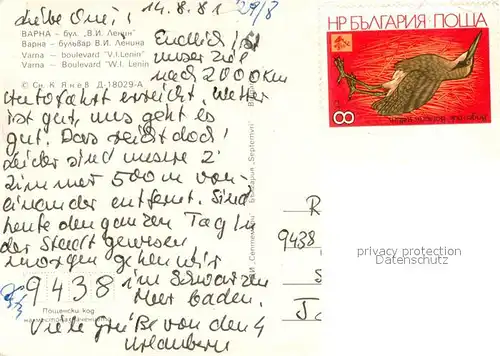 Liebe Omi! 14.8.81 29/8
ВАРНА – бул. „В.И. Ленин"
Варна – бульвар В.И. Ленина
Varna – boulevard "V.I.Lenin"
Varna – Boulevard "W.I. Lenin
© Сн. К. Янев Д-18029-А
Endlich ist
unser Ziel
nach 2000km
Autofahrt erreicht. Wetter
ist gut, uns geht es
gut. Das reicht doch!
Leider sind unsere 2
Zimmer 500m von-
einander entfernt. Sind
heute den ganzen Tag in
der Stadt gewesen
morgen gehen wir
im Schwarzen
Meer baden.
Viele Grüße von den 4
Urlaubern
9438
Пощенски код
на местоназначението
България "Septemvri"
НР БЪЛГАРИЯ ПОЩА
8
R
9438
S
J
privacy protection
Datenschutz